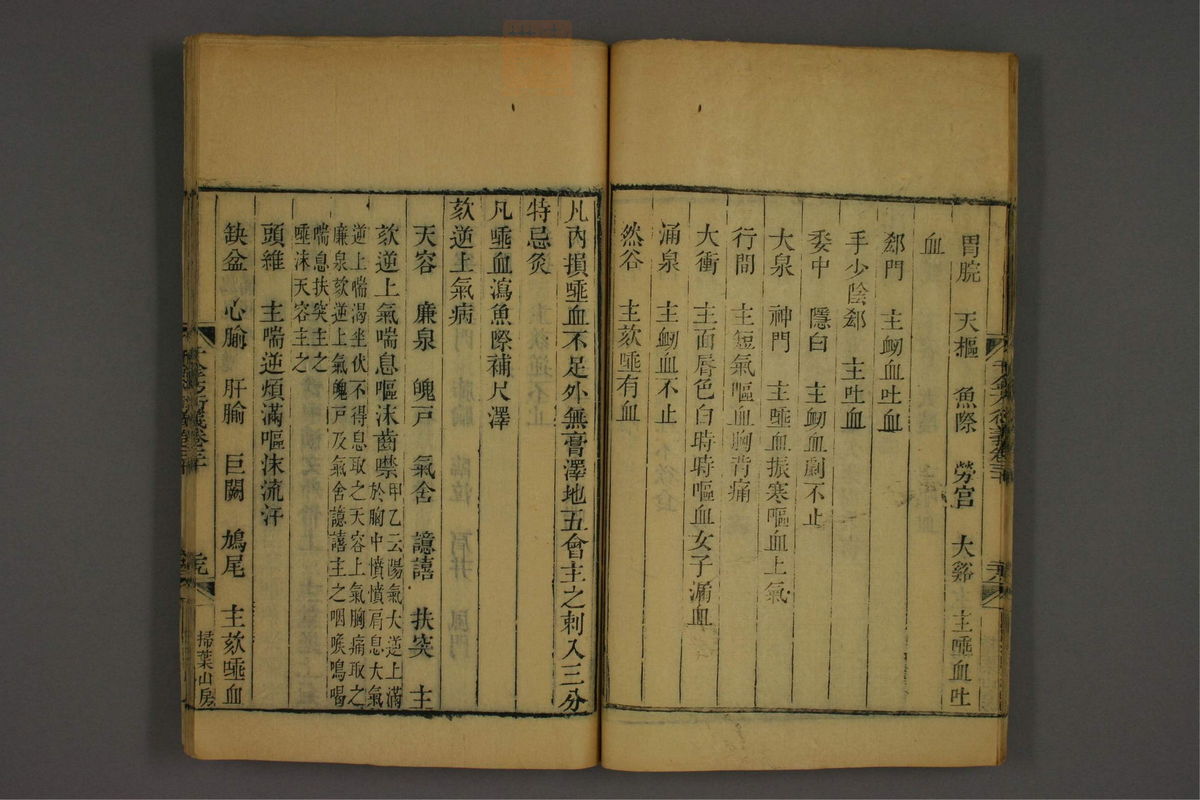 胃脘　天樞　魚際　勞宮　大谿　主唾血吐
血
郄門　主衂血吐血
手少陰郄　主吐血
委中　隱白　主衂血劇不止
大泉　神門　主唾血振寒嘔血上氣
行間　主短氣嘔血胸背痛
大衝　主面唇色白時時嘔血女子漏血
涌泉　主衂血不止
然谷　主欬唾有血
凡內損唾血不足外無膏澤地五會主之刺入三分
特忌灸
凡唾血瀉魚際補尺澤
欬逆上氣病
天容　廉泉　魄戶　氣舍　譩譆　扶突　主
欬逆上氣喘息嘔沫齒噤
甲乙云陽氣大逆上滿
於胸中憤憤肩息大氣
逆上喘渴坐伏不得息取之天容上氣胸痛取之
廉泉欬逆上氣魄戶及氣舍譩譆主之咽喉鳴喝
喘息扶突主之
唾沫天容主之
頭維　主喘逆煩滿嘔沫流汗
缺盆　心腧　肝腧　巨闕　鳩尾　主欬唾血
掃葉山房